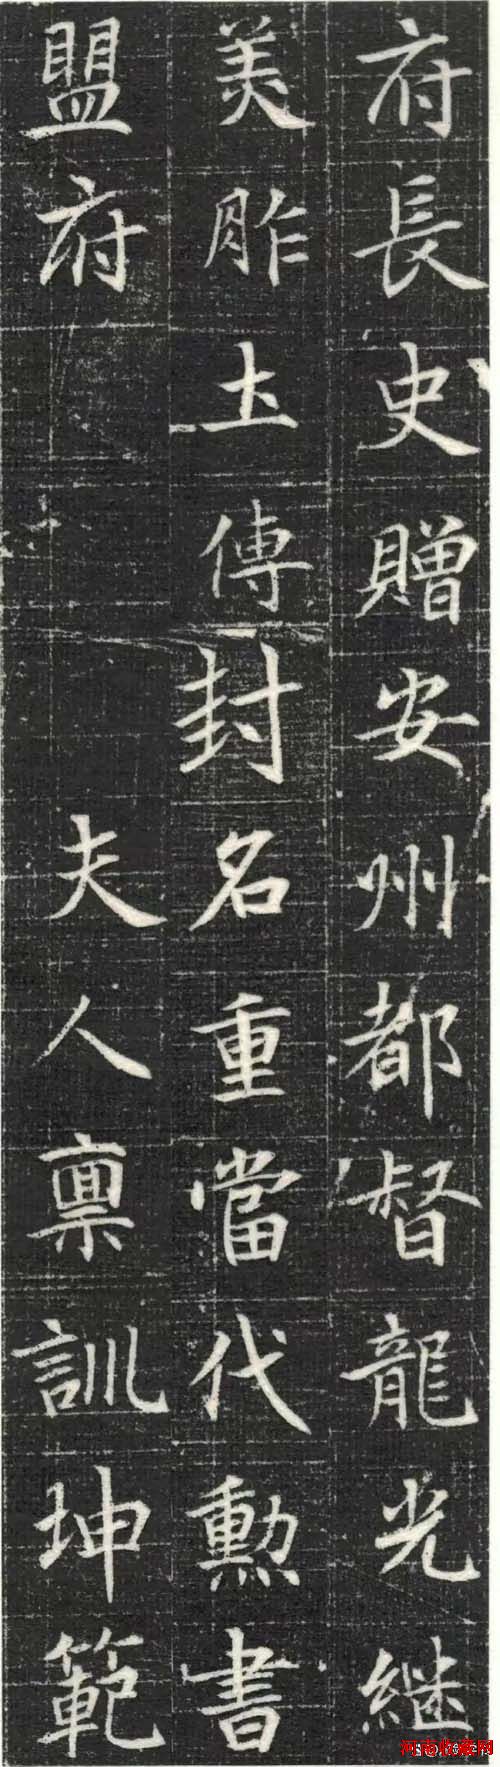 府長史贈安州都督龍光継
美胙土傳封名重當代勲書
盟府夫人稟訓坤範
河南收藏网